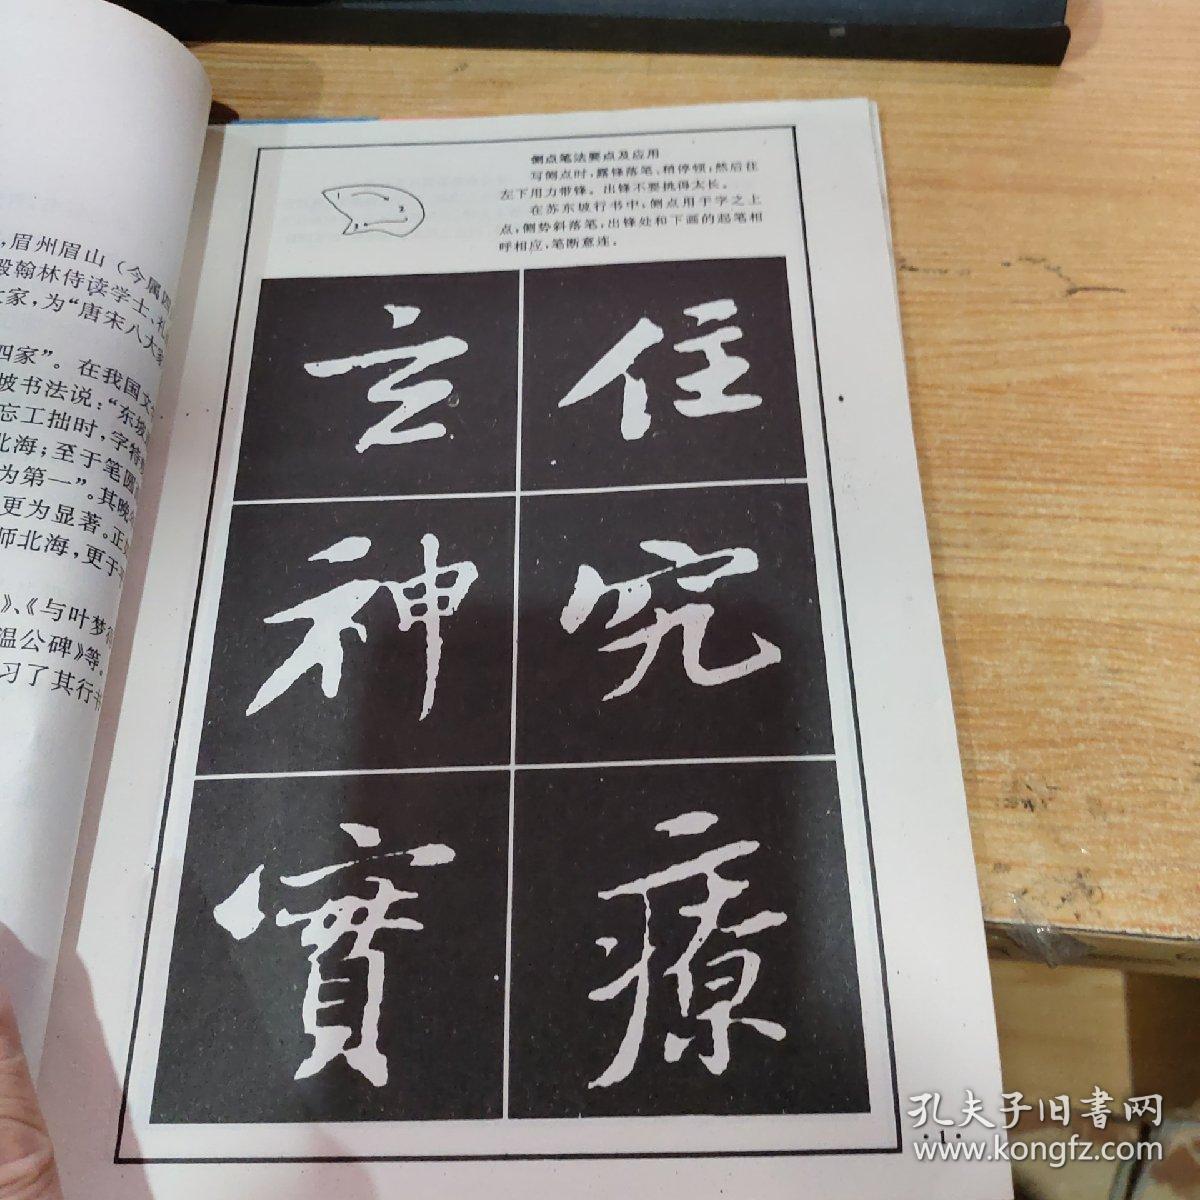 ，眉州眉山（今属四
殿翰林侍读学士、礼
家，为“唐宋八大家
四家”。在我国文
坡书法说：“东坡
忘工拙时，字特
北海；至于笔圆
为第一”。其晚
更为显著。正
师北海，更于
》、《与叶梦
温公碑》等。
习了其行书
侧点笔法要点及应用
写侧点时，露锋落笔、稍停顿；然后往
左下用力带锋。出锋不要挑得太长。
在苏东坡行书中，侧点用于字之上
点，侧势斜落笔，出锋处和下画的起笔相
呼相应，笔断意连。
1
2
3
玄 住
神 究
實 療
·1·
孔夫子旧書网
www.kongfz.com